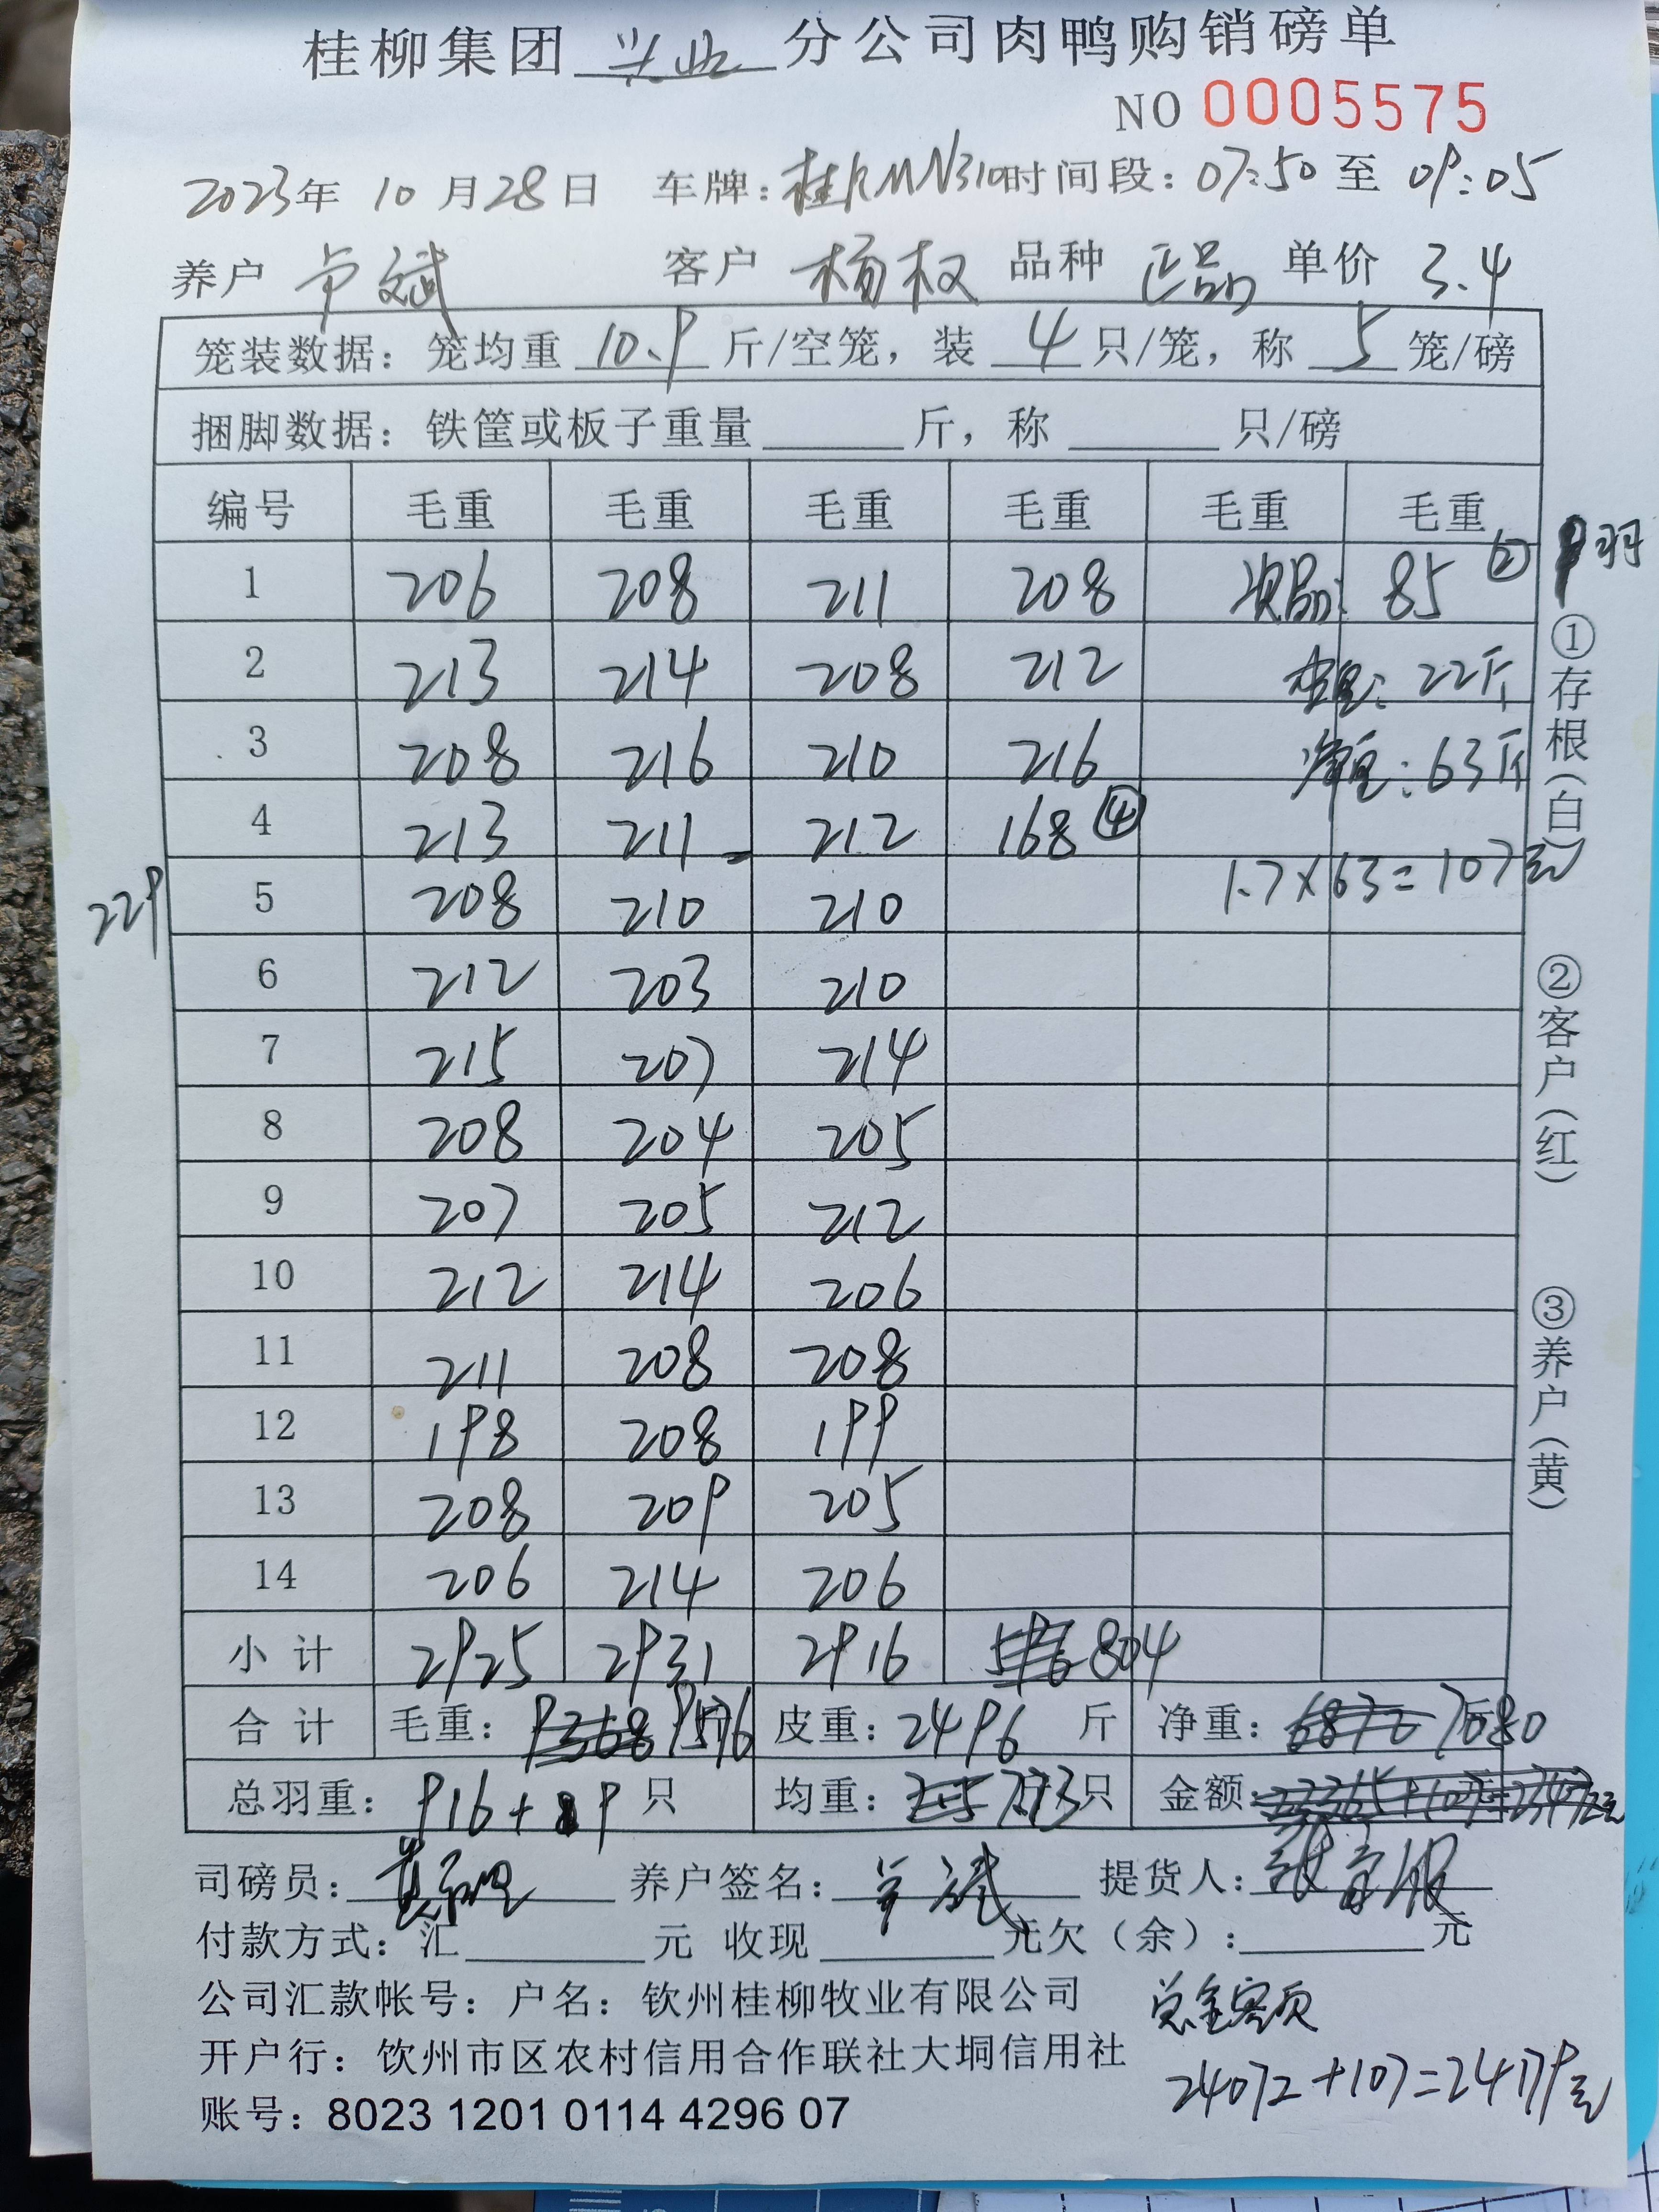 桂柳集团 兴业 分公司肉鸭购销磅单
NO 0005575
2023年 10月28日 车牌：桂KMN310 时间段：07:50 至 09:05
养户 卢斌 客户 杨权 品种 正品 单价 3.4
笼装数据：笼均重 10.9 斤/空笼，装 4 只/笼，称 5 笼/磅
捆脚数据：铁筐或板子重量 斤，称 只/磅
编号 毛重 毛重 毛重 毛重 毛重 毛重
1 206 208 211 208 次品: 85 ② 9羽
2 213 214 208 212 皮重: 22斤
3 208 216 210 216 净重: 63斤
4 213 211 212 168 ④
5 208 210 210 1.7×63=107元
229
6 212 203 210
7 215 207 214
8 208 204 205
9 207 205 212
10 212 214 206
11 211 208 208
12 198 208 199
13 208 209 205
14 206 214 206
小计 2925 2931 2916 804
合计 毛重：9368 9576 皮重：2496 斤 净重：6872 7080
总羽重：916+9 只 均重：7.73只 金额：
司磅员： 养户签名：卢斌 提货人：
付款方式：汇 元 收现 元欠（余）： 元
公司汇款帐号：户名：钦州桂柳牧业有限公司
总金额
开户行：钦州市区农村信用合作联社大垌信用社
24072+107=24179元
账号：8023 1201 0114 4296 07
①存根（白）
②客户（红）
③养户（黄）